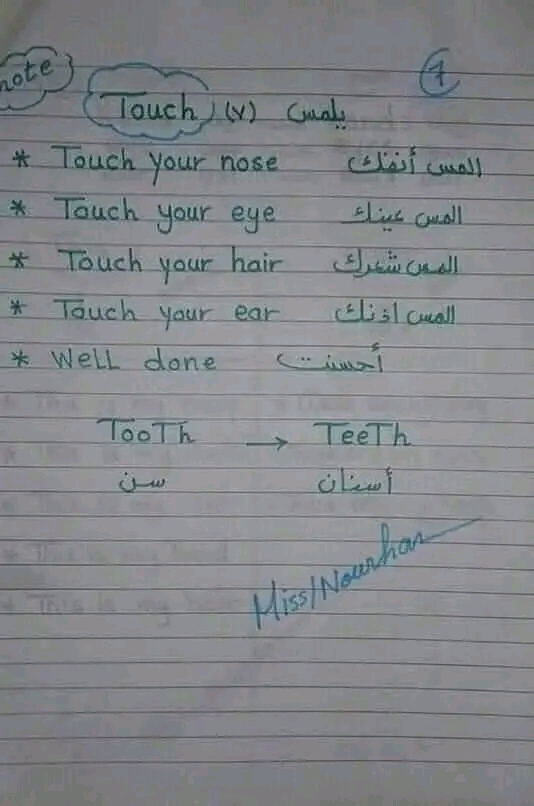 note
7
Touch (v) يلمس
* Touch your nose المس أنفك
* Touch your eye المس عينك
* Touch your hair المس شعرك
* Touch your ear المس اذنك
* Well done أحسنت
TooTh → TeeTh
سن أسنان
Miss/Nourhan